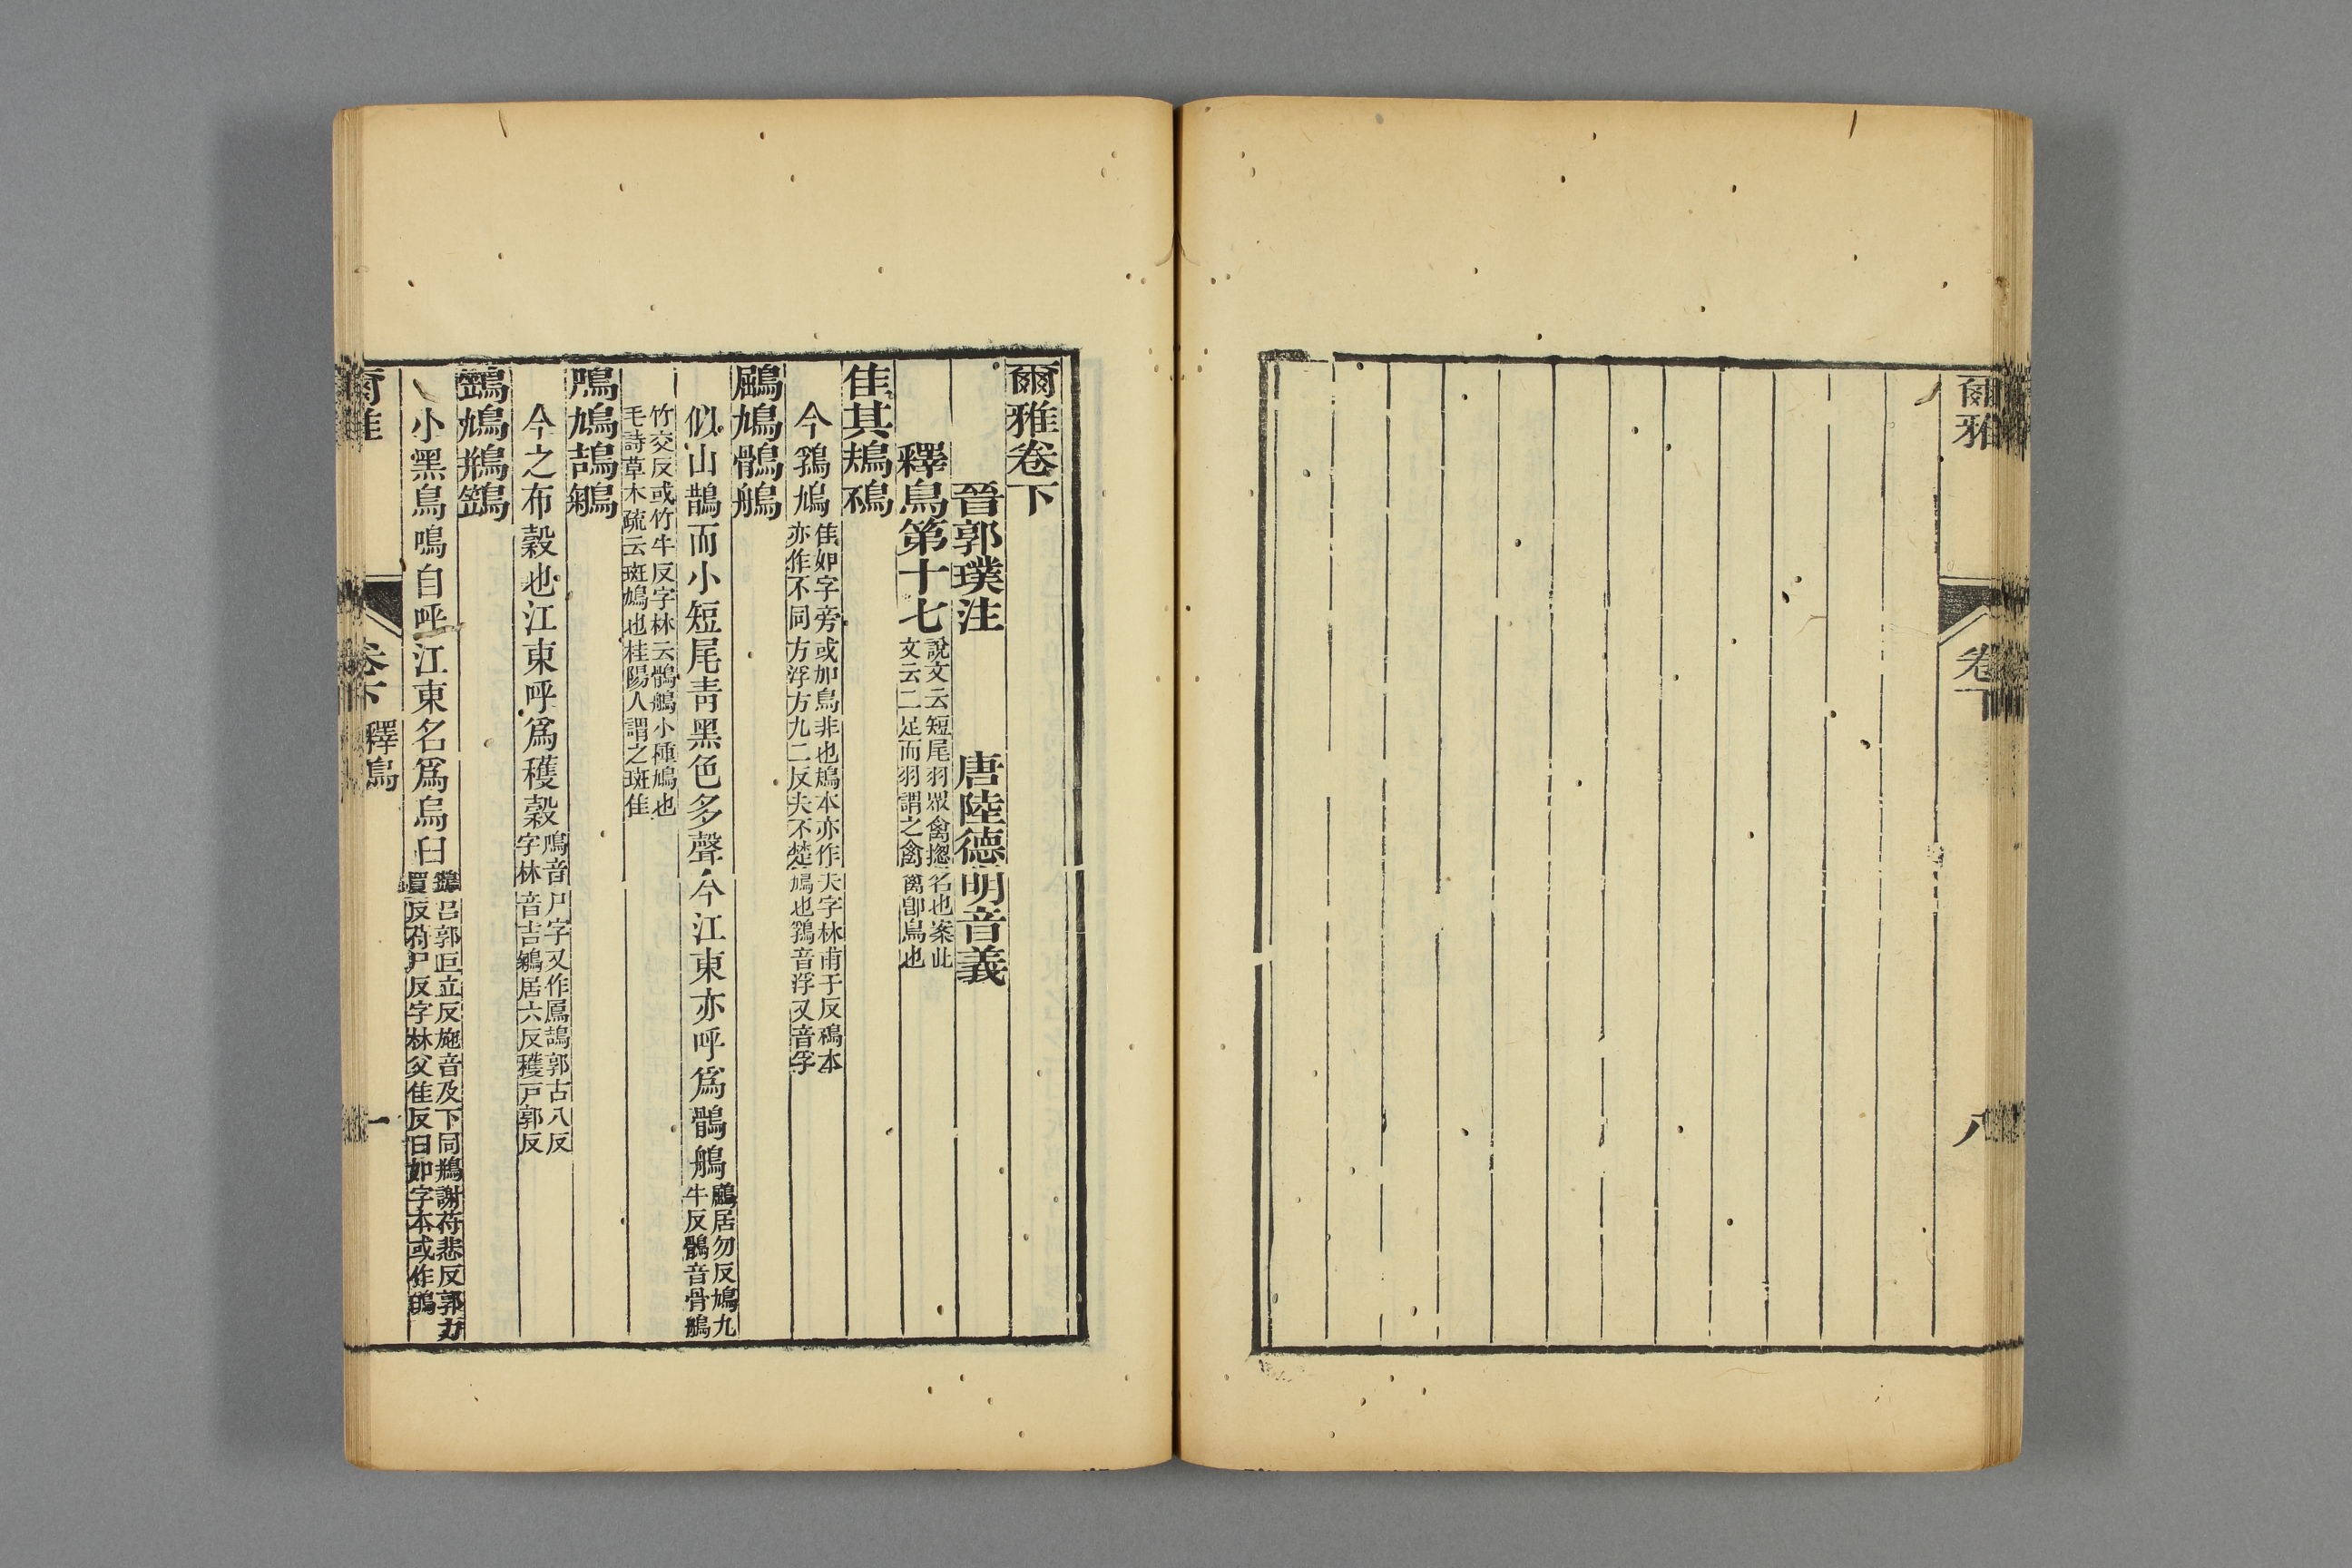 爾雅
卷下
八
爾雅卷下
晉郭璞注 唐陸德明音義
釋鳥第十七
說文云短尾羽眾禽揔名也案此
文云二足而羽謂之禽禽卽鳥也
隹其鳺鴀
今鵓鳩
隹如字旁或加鳥非也鳺本亦作夫字林甫于反鴀本
亦作不同方浮方九二反夫不楚鳩也鵓音浮又音孚
鶌鳩鶻鵃
似山鵲而小短尾青黑色多聲今江東亦呼爲鶻鵃
鶌居勿反鳩九
牛反鶻音骨鵃
竹交反或竹牛反字林云鶻鵃小種鳩也
毛詩草木疏云斑鳩也桂陽人謂之斑隹
鳲鳩鴶鵴
今之布穀也江東呼爲穫穀
鳲音尸字又作鳲鴶郭古八反
字林音吉鵴居六反穫戸郭反
鷑鳩鵧鷑
小黑鳥鳴自呼江東名爲烏臼
鷑呂郭巨立反施音及下同鵧謝苻悲反郭力
買反苻尸反字林父隹反臼如字本或作鴭
爾雅
卷下
釋鳥
一